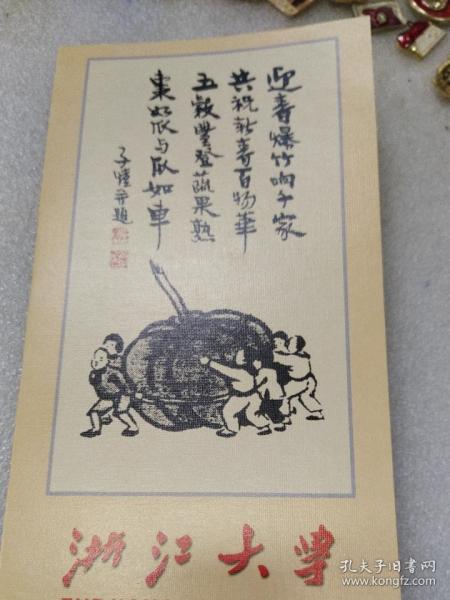 迎春爆竹响千家
共祝新春百物華
五穀豐登蔬果熟
棗如瓜与瓜如車
子愷并題
浙江大学
孔夫子旧书网
www.kongfz.com